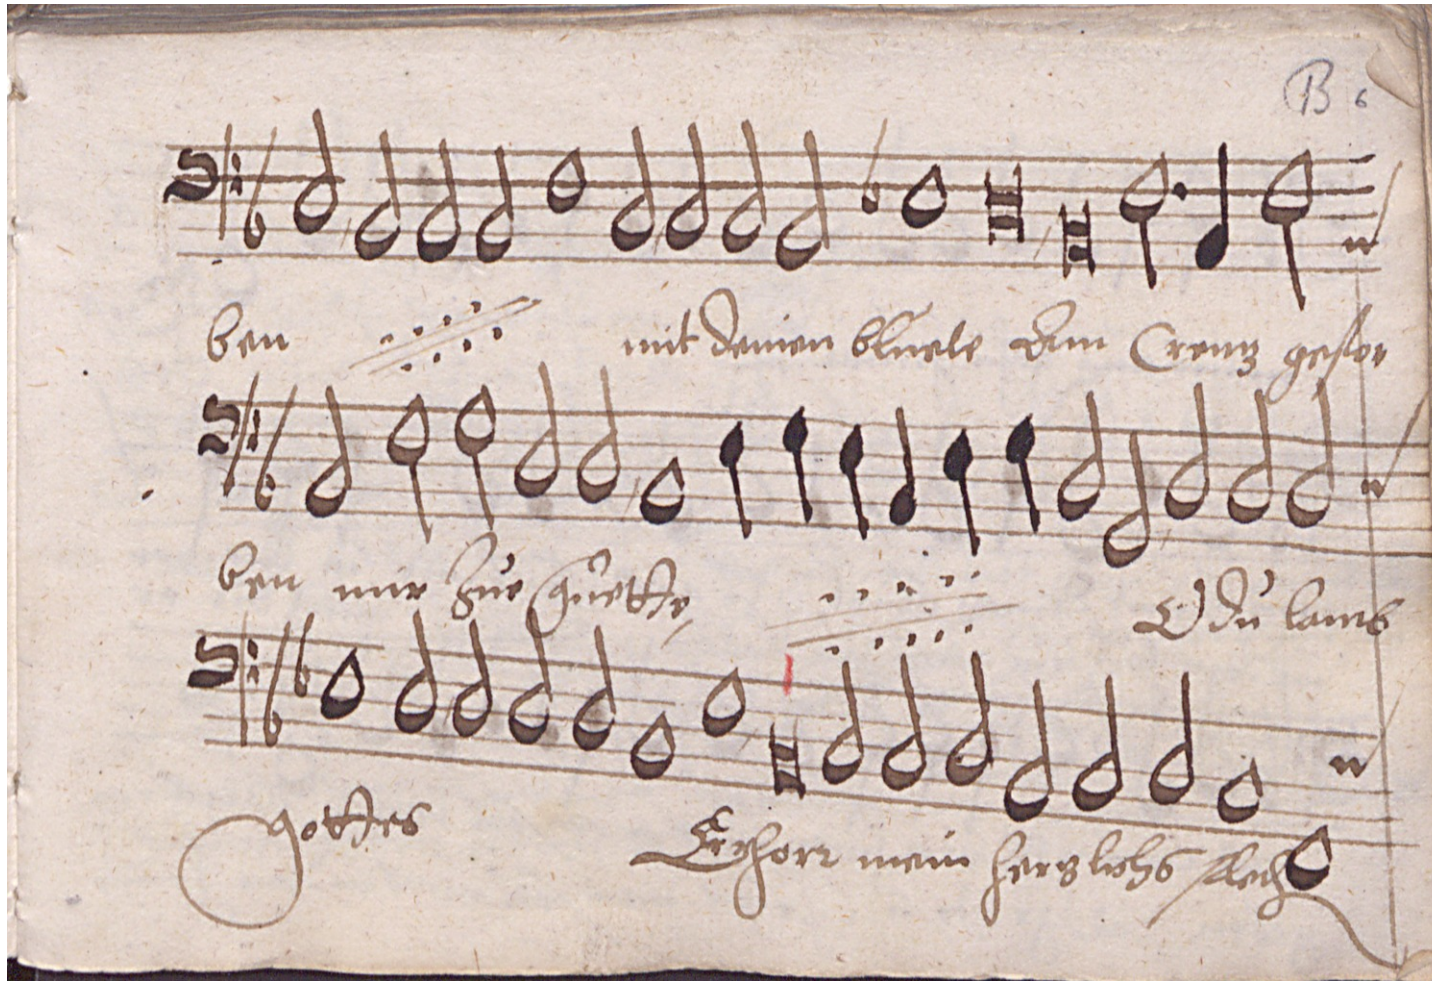 B 6
ben mit deinen bluete Am Creuz gestor
ben mir zue guette, O du lamb
gottes Erhorr mein herzlichs flech